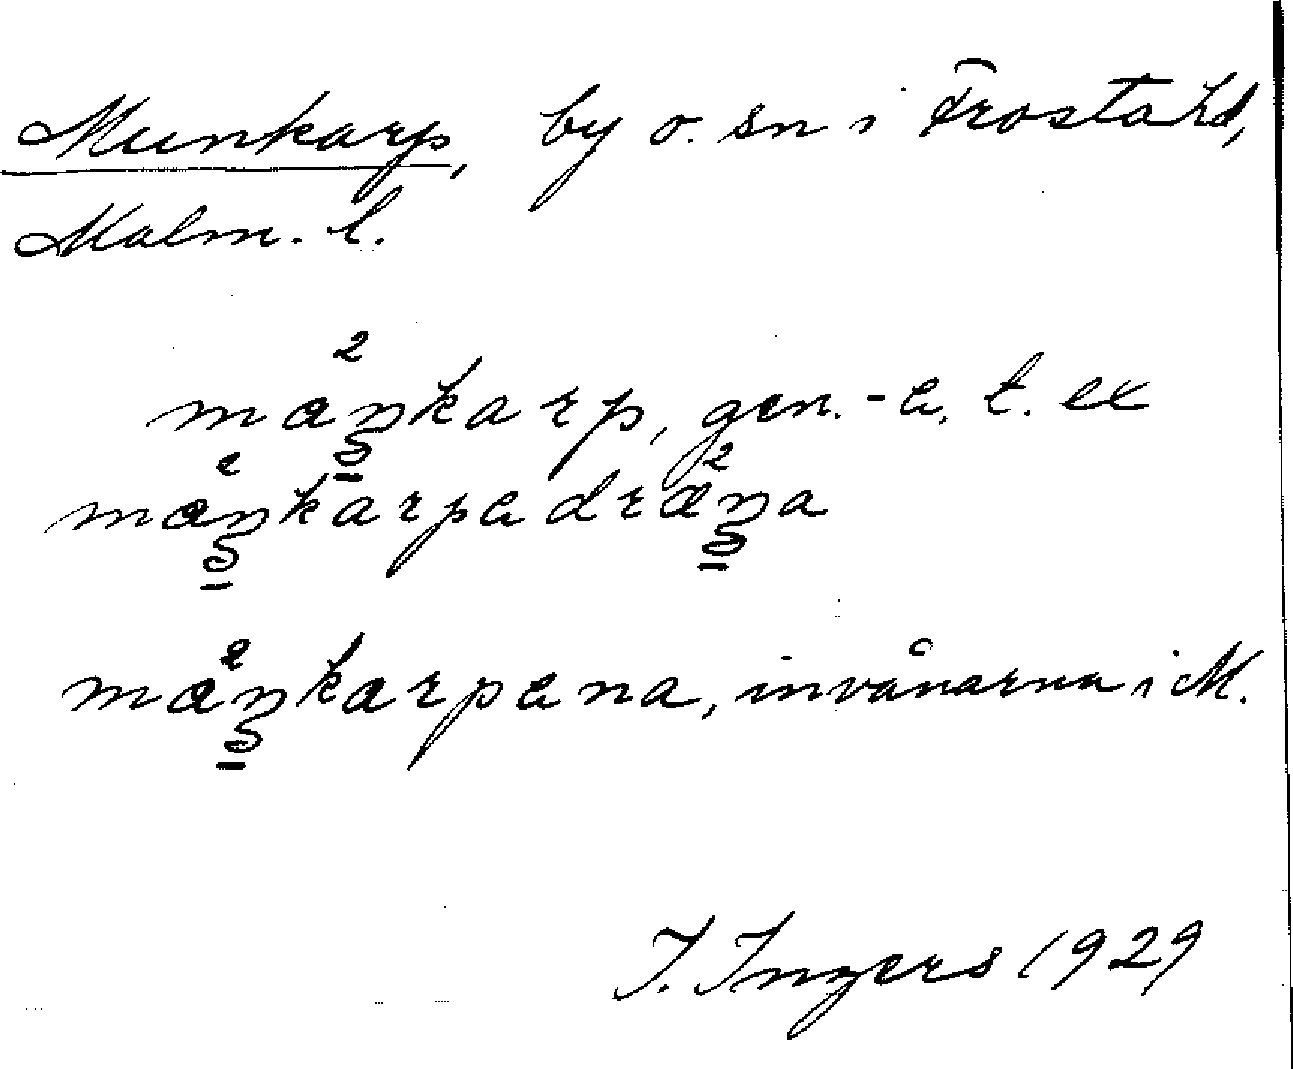 Munkarp, by o. sn i Frosta hd,
Malm. l.
mœŋ²karp, gen. -a, t. ex
mœŋ²karpa drœŋ²a
mœŋ²karpana, invånarna i M.
I. Ingers 1929